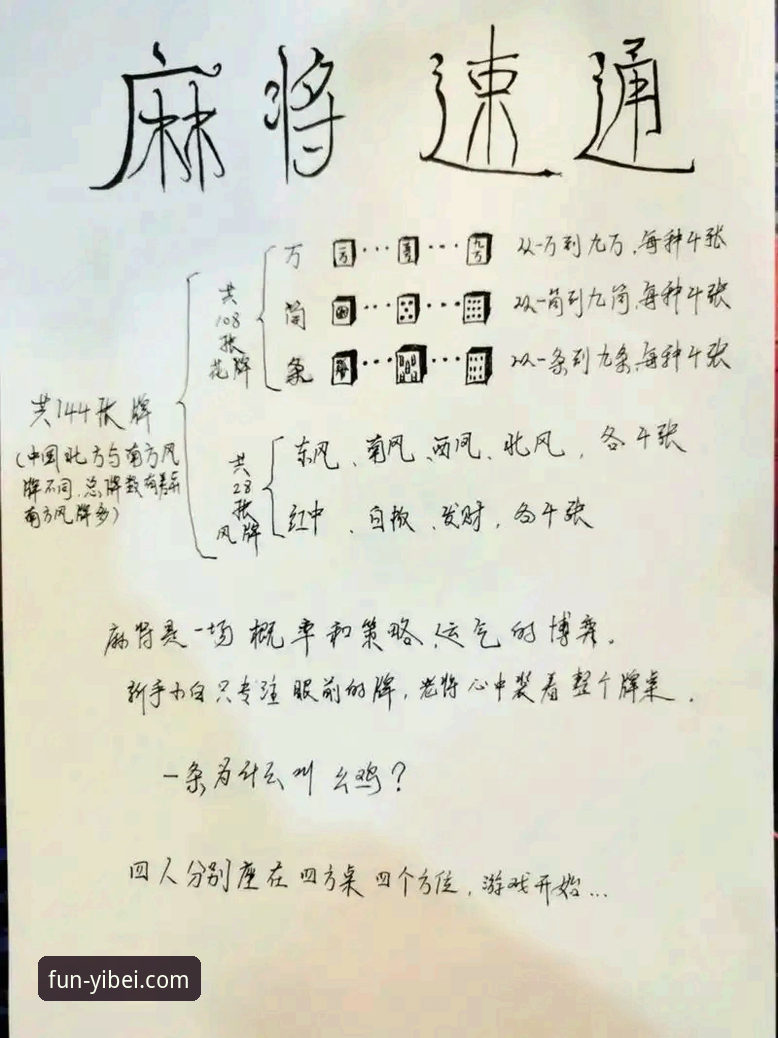 麻将 速通
共144张牌
(中国北方与南方风
牌不同,总牌数有差异
南方风牌多)
共
108
张
花牌
万
从一万到九万,每种4张
筒
从一筒到九筒,每种4张
条
从一条到九条,每种4张
共
28
张
风牌
东风、南风、西风、北风,各4张
红中、白板、发财,各4张
麻将是一场概率和策略、运气的博弈。
新手小白只专注眼前的牌,老将心中装着整个牌桌.
一条为什么叫幺鸡?
四人分别座在四方桌四个方位,游戏开始...
fun-yibei.com